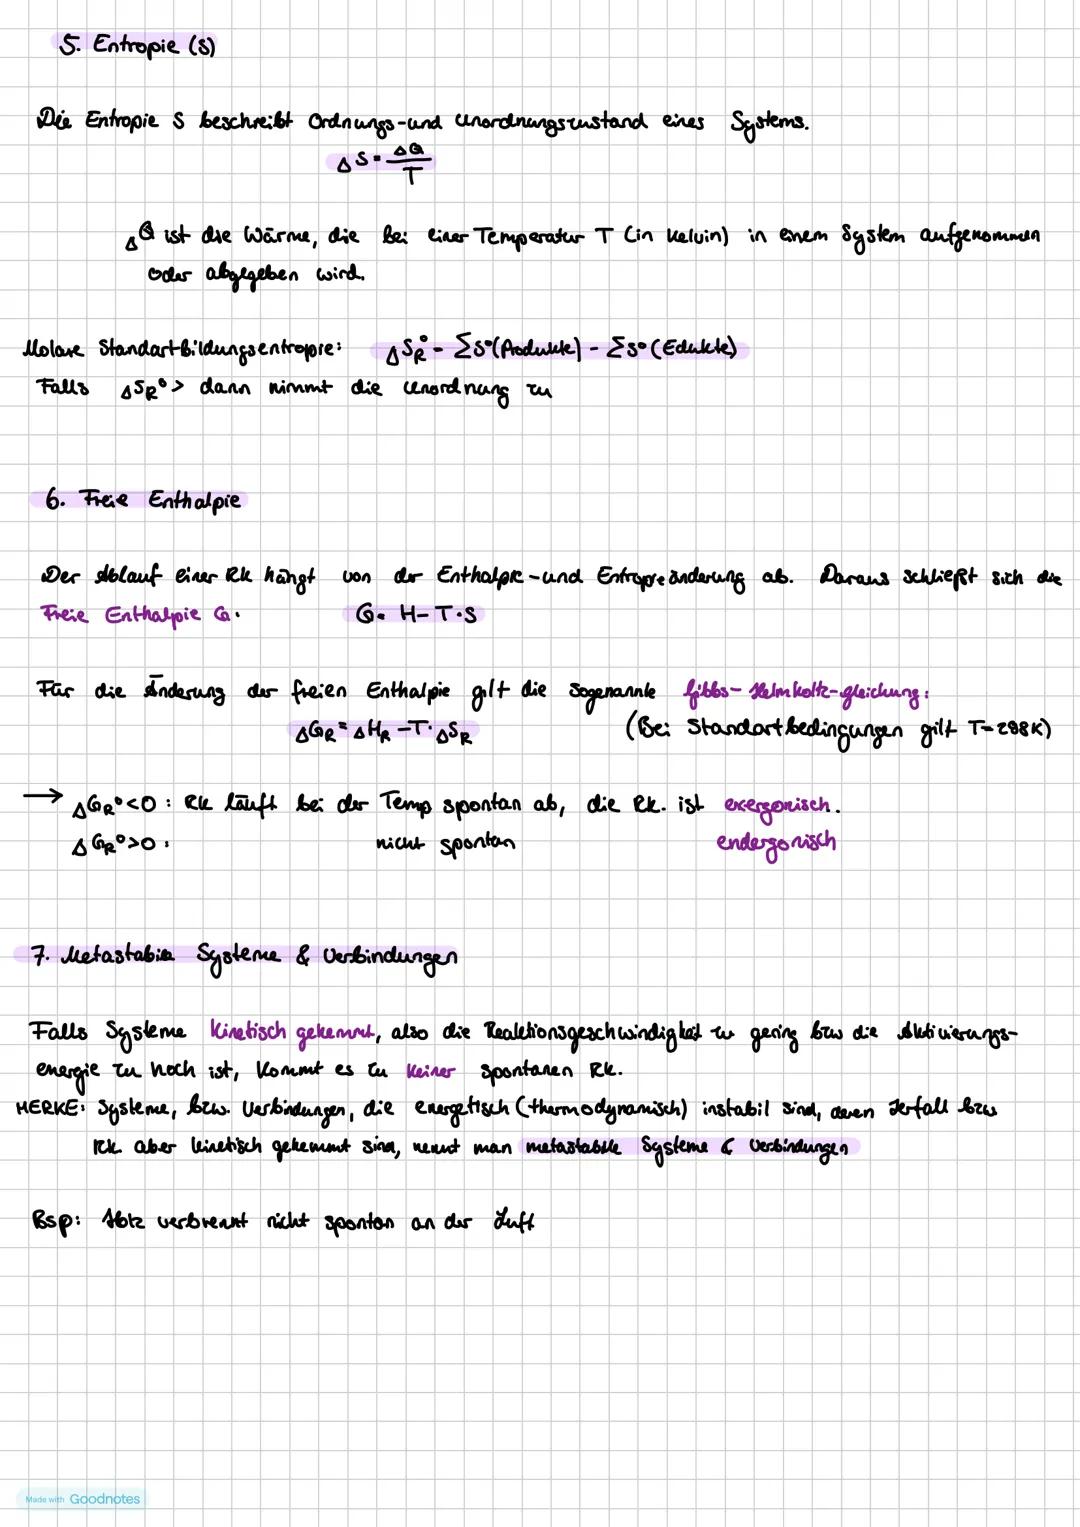 5. Entropie (S)
Die Entropie S beschreibt Ordnungs-und Unordnungszustand eines Systems.
ΔS = ΔQ / T
ΔQ ist die Wärme, die bei einer Temperatur T (in Kelvin) in einem System aufgenommen
oder abgegeben wird.
Molare Standart-Bildungsentropie: ΔS_R° = ΣS°(Produkte) - ΣS°(Edukte)
Falls ΔS_R° > dann nimmt die Unordnung zu
6. Freie Enthalpie
Der Ablauf einer Rk hängt von der Enthalpie-und Entropieänderung ab. Daraus schließt sich die
Freie Enthalpie G. G = H - T·S
Für die Änderung der freien Enthalpie gilt die sogenannte Gibbs-Helmholtz-gleichung:
ΔG_R = ΔH_R - T·ΔS_R (Bei Standartbedingungen gilt T=298K)
→ ΔG_R°<0: Rk läuft bei der Temp spontan ab, die Rk. ist exergonisch.
ΔG_R°>0: nicht spontan endergonisch
7. Metastabile Systeme & Verbindungen
Falls Systeme kinetisch gehemmt, also die Reaktionsgeschwindigkeit zu gering bzw die Aktivierungs-
energie zu hoch ist, kommt es zu keiner spontanen Rk.
MERKE: Systeme, bzw. Verbindungen, die energetisch (thermodynamisch) instabil sind, deren Zerfall bzw
Rk. aber kinetisch gehemmt sind, nennt man metastabile Systeme & Verbindungen
Bsp: Holz verbrennt nicht spontan an der Luft
Made with Goodnotes